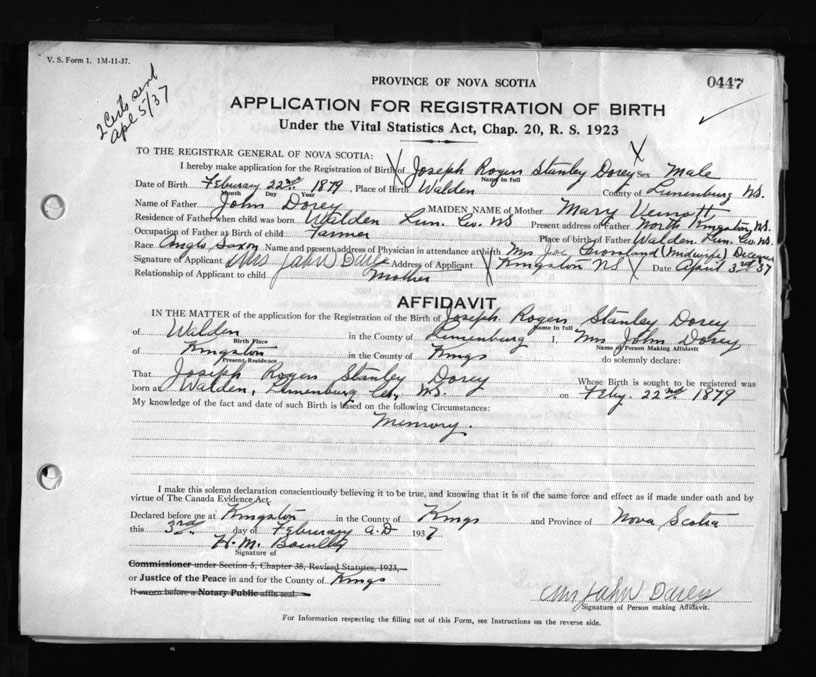 V. S. Form 1. 1M-11-37.
2 Certs sent
Apl 5/37
PROVINCE OF NOVA SCOTIA
0447
APPLICATION FOR REGISTRATION OF BIRTH
Under the Vital Statistics Act, Chap. 20, R. S. 1923
TO THE REGISTRAR GENERAL OF NOVA SCOTIA:
I hereby make application for the Registration of Birth of Joseph Rogers Stanley Dorey Sex Male
Name in full
Date of Birth Feburay 22nd 1879, Place of Birth Walden County of Lunenburg NS.
Month Day Year
Name of Father John Dorey MAIDEN NAME of Mother Mary Veinott
Residence of Father when child was born Walden Lun. Co. NS Present address of Father North Kingston, NS.
Occupation of Father at Birth of child Farmer Place of birth of Father Walden. Lun. Co. NS.
Race Anglo Saxon Name and present address of Physician in attendance at birth Mrs Joe (Midwife)
Signature of Applicant Mrs John Dorey Address of Applicant Kingston NS Date April 3rd 37
Relationship of Applicant to child Mother
AFFIDAVIT
IN THE MATTER of the application for the Registration of the Birth of Joseph Rogers Stanley Dorey
Name in full
of Walden in the County of Lunenburg I, Mrs John Dorey
Birth Place Name of Person Making Affidavit
of Kingston in the County of Kings do solemnly declare:
Present Residence
That Joseph Rogers Stanley Dorey Whose Birth is sought to be registered was
born at Walden, Lunenburg Co, NS. on Feby. 22nd 1879
My knowledge of the fact and date of such Birth is based on the following Circumstances:
Memory.
I make this solemn declaration conscientiously believing it to be true, and knowing that it is of the same force and effect as if made under oath and by
virtue of The Canada Evidence Act.
Declared before me at Kingston in the County of Kings and Province of Nova Scotia
this 3rd day of Feburary A.D 1937
H. M.
Signature of
Commissioner under Section 5, Chapter 38, Revised Statutes, 1923,
or Justice of the Peace in and for the County of Kings
If sworn before a Notary Public affix seal.
Mrs John Dorey
Signature of Person making Affidavit.
For Information respecting the filling out of this Form, see Instructions on the reverse side.